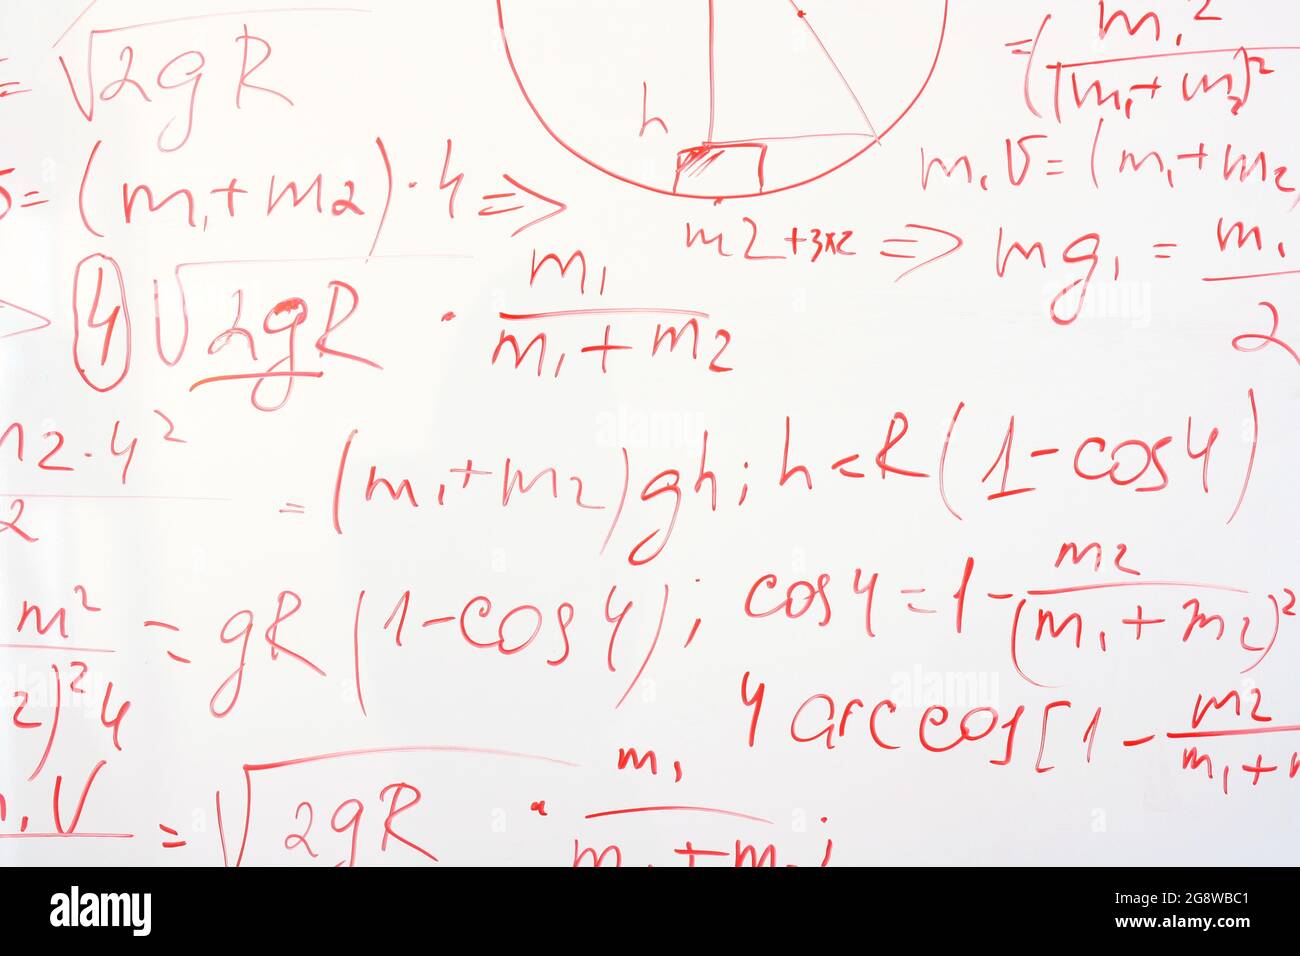 = √2gR
= (m₁+m2)·4 =>
4 √2gR · m₁/(m₁+m2)
h
m2+3x2 => mg₁ = m₁/2
= (m₁²/(m₁+m2)²
m₁V = (m₁+m2
m2·4²/2 = (m₁+m2)gh; h=R(1-cos4)
m²/2)²4 = gR(1-cos4); cos4=1-m2/(m₁+m2)²
4 arccos[1-m2/m₁+
V = √2gR · m₁/m₁+m2;
alamy
Image ID: 2G8WBC1
www.alamy.com